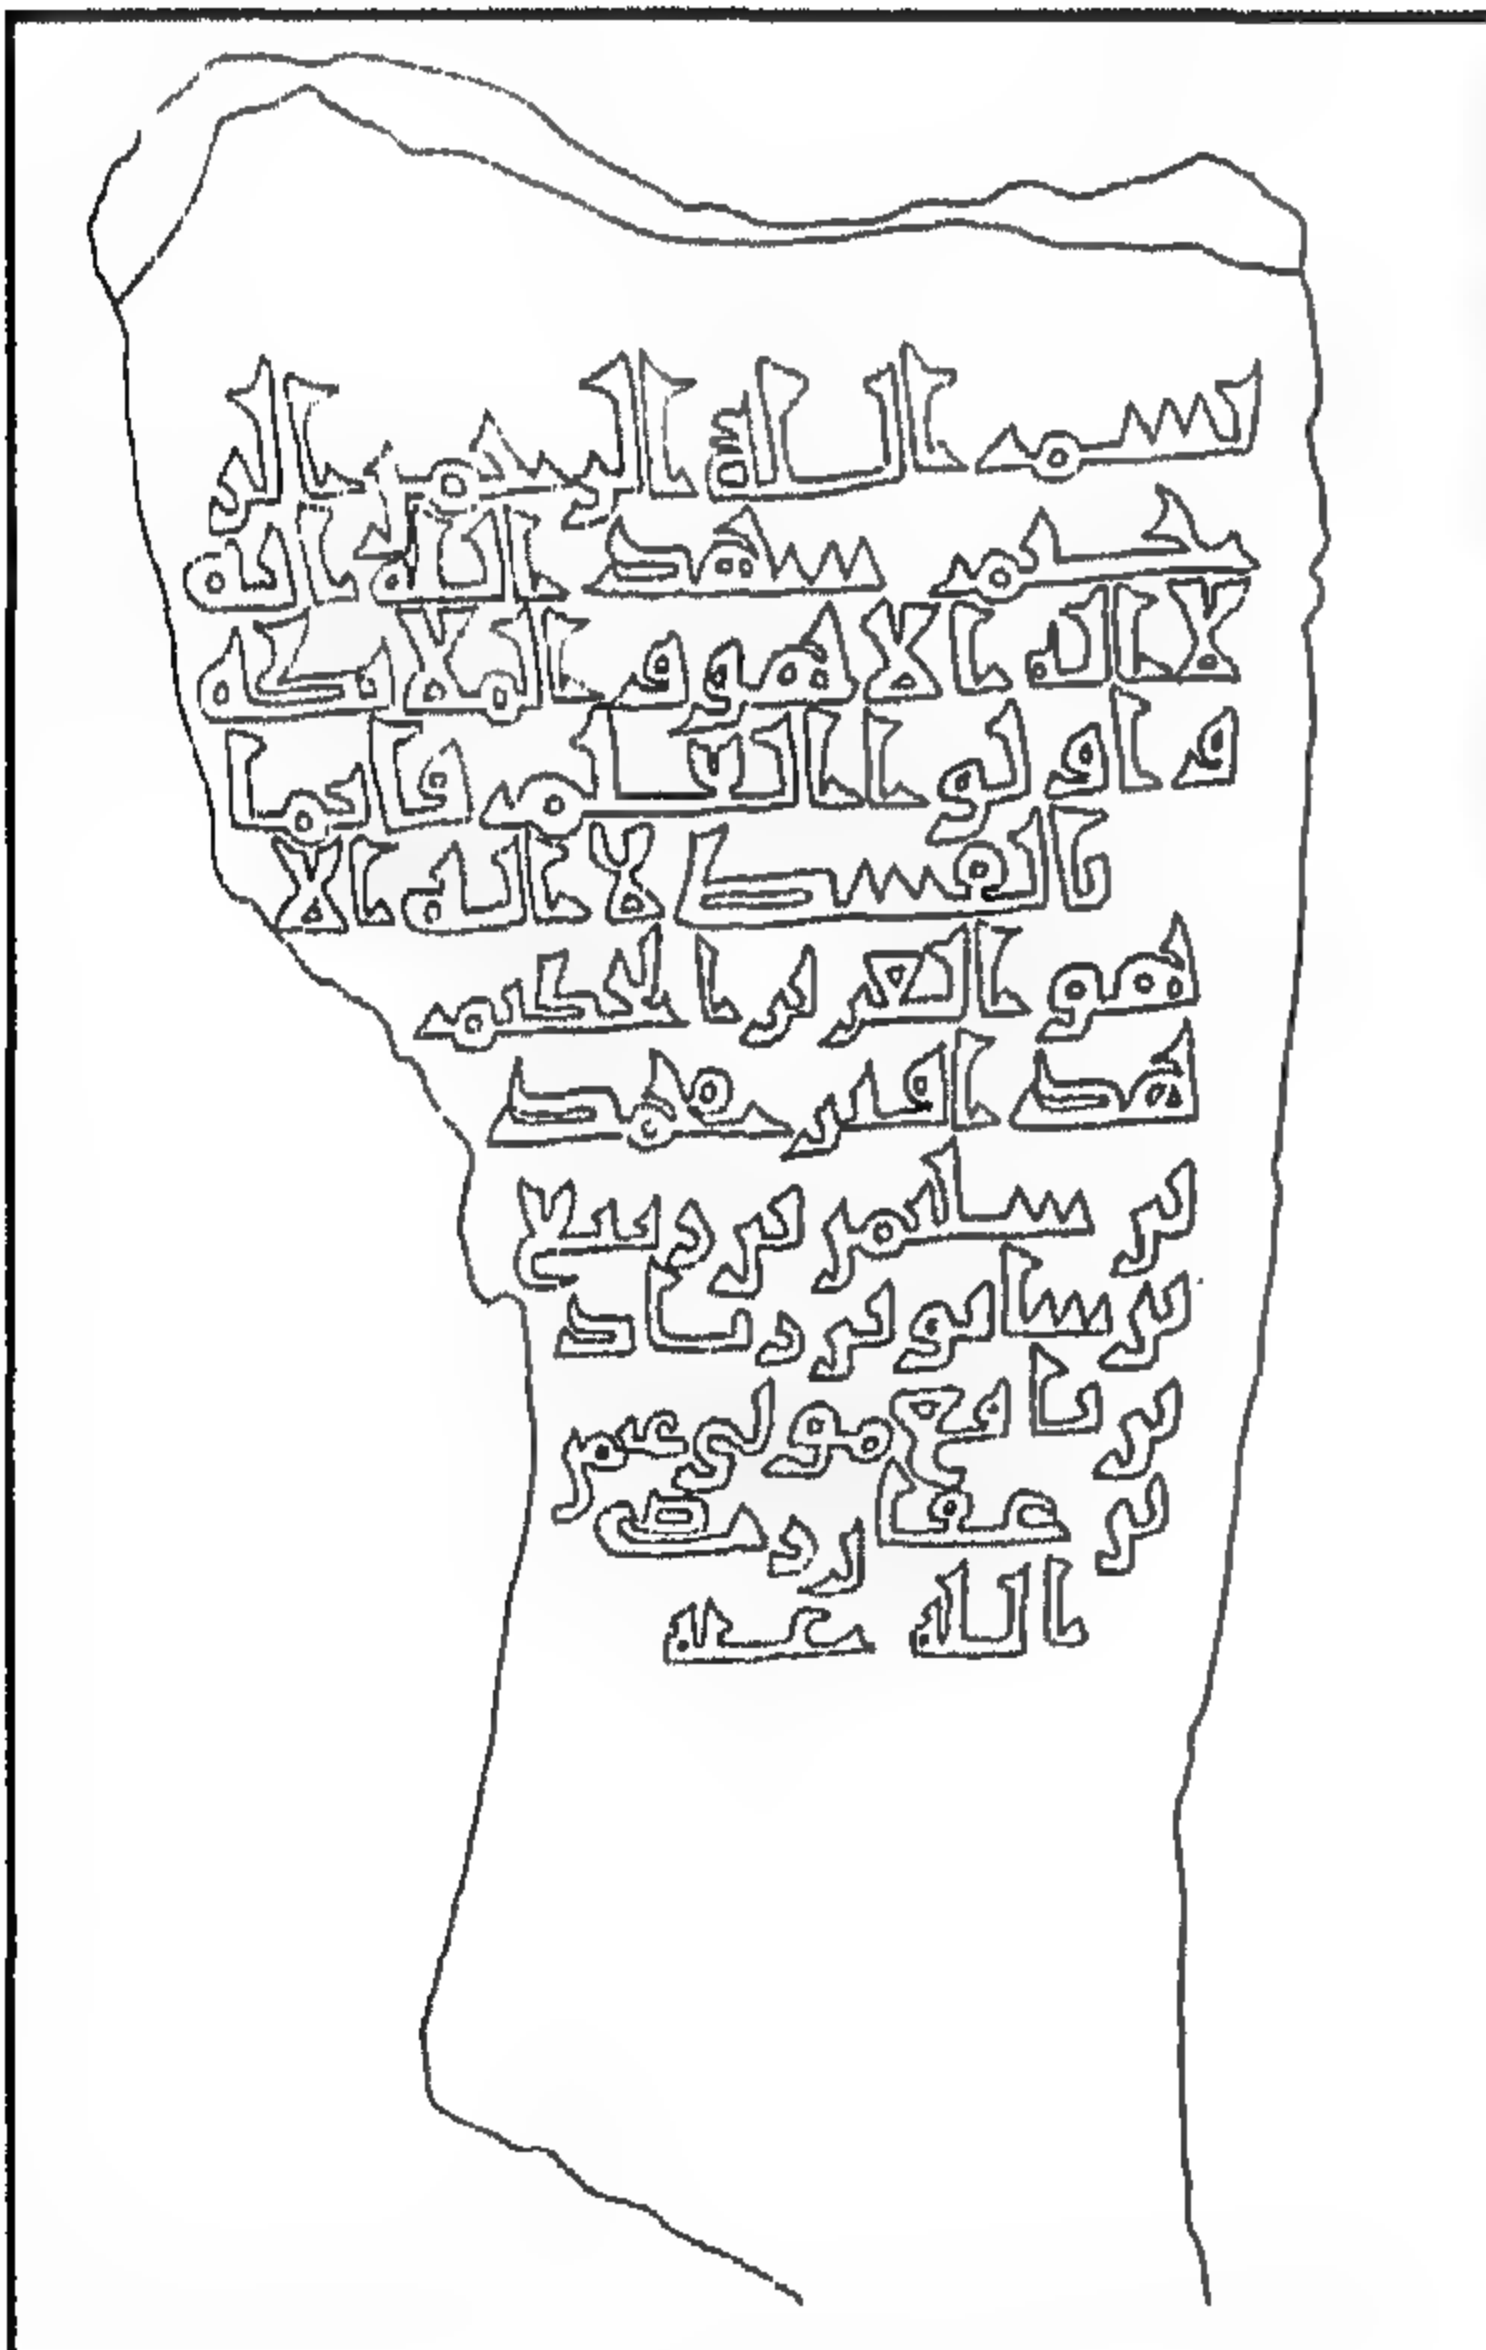 بسم الله الرحمن الر
حيم شهد الله انه
لا اله الا هو و الملائكه
و اولوا العلم قائما
بالقسط لا اله الا
هو العزيز الحكيم
هذا قبر محمد
بن سليمن بن ربيع
بن بن زياد
بن نافع مولى عثمن
بن عفان رضي
الله عنه